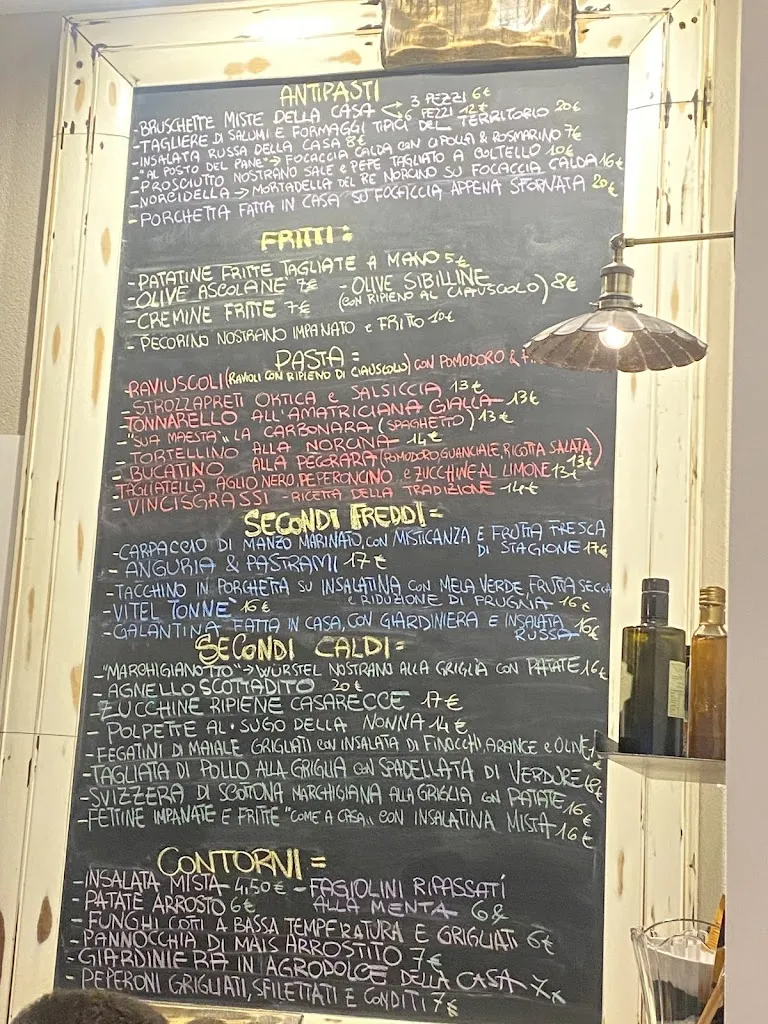 ANTIPASTI
-BRUSCHETTE MISTE DELLA CASA 3 PEZZI 6€
6 PEZZI 12€
-TAGLIERE DI SALUMI E FORMAGGI TIPICI DEL TERRITORIO 20€
-INSALATA RUSSA DELLA CASA 8€
-"AL POSTO DEL PANE"→FOCACCIA CALDA CON CIPOLLA & ROSMARINO 7€
-PROSCIUTTO NOSTRANO SALE e PEPE TAGLIATO A COLTELLO 10€
-NORCIDELLA→MORTADELLA DEL RE NORCINO SU FOCACCIA CALDA 16€
-PORCHETTA FATTA IN CASA SU FOCACCIA APPENA SFORNATA 20€
FRITTI:
-PATATINE FRITTE TAGLIATE A MANO 5€
-OLIVE ASCOLANE 7€ -OLIVE SIBILLINE
(CON RIPIENO AL CIAUSCOLO) 8€
-CREMINE FRITTE 7€
-PECORINO NOSTRANO IMPANATO e FRITTO 10€
PASTA=
-RAVIUSCOLI (RAVIOLI CON RIPIENO DI CIAUSCOLO) CON POMODORO &
-STROZZAPRETI ORTICA E SALSICCIA 13€
-TONNARELLO ALL'AMATRICIANA GIALLA 13€
-"SUA MAESTÀ" LA CARBONARA (SPAGHETTO) 13€
-TORTELLINO ALLA NORCINA 14€
-BUCATINO ALLA PECRARA (POMODORO, GUANCIALE, RICOTTA SALATA) 13€
-TAGLIATELLA AGLIO NERO, PEPERONCINO e ZUCCHINE AL LIMONE 13€
-VINCISGRASSI -RICETTA DELLA TRADIZIONE 14€
SECONDI FREDDI=
-CARPACCIO DI MANZO MARINATO, CON MISTICANZA E FRUTTA FRESCA
DI STAGIONE 17€
-ANGURIA & PASTRAMI 17€
-TACCHINO IN PORCHETTA SU INSALATINA CON MELA VERDE, FRUTTA SECCA
E RIDUZIONE DI PRUGNA 16€
-VITEL TONNÈ 16€
-GALANTINA FATTA IN CASA, CON GIARDINIERA E INSALATA
RUSSA 16€
SECONDI CALDI=
-"MARCHIGIANOTTO"→WÜRSTEL NOSTRANO ALLA GRIGLIA CON PATATE 16€
-AGNELLO SCOTTADITO 20€
-ZUCCHINE RIPIENE CASARECCE 17€
-POLPETTE AL SUGO DELLA NONNA 14€
-FEGATINI DI MAIALE GRIGLIATI CON INSALATA DI FINOCCHI, ARANCE e OLIVE
-TAGLIATA DI POLLO ALLA GRIGLIA CON SPADELLATA DI VERDURE 18€
-SVIZZERA DI SCOTTONA MARCHIGIANA ALLA GRIGLIA CON PATATE 16€
-FETTINE IMPANATE E FRITTE "COME A CASA" CON INSALATINA MISTA 16€
CONTORNI=
-INSALATA MISTA 4,50€ -FAGIOLINI RIPASSATI
ALLA MENTA 6€
-PATATE ARROSTO 6€
-FUNGHI COTTI A BASSA TEMPERATURA E GRIGLIATI 6€
-PANNOCCHIA DI MAIS ARROSTITO 7€
-GIARDINIERA IN AGRODOLCE DELLA CASA 7€
-PEPERONI GRIGLIATI, SFILETTATI E CONDITI 7€